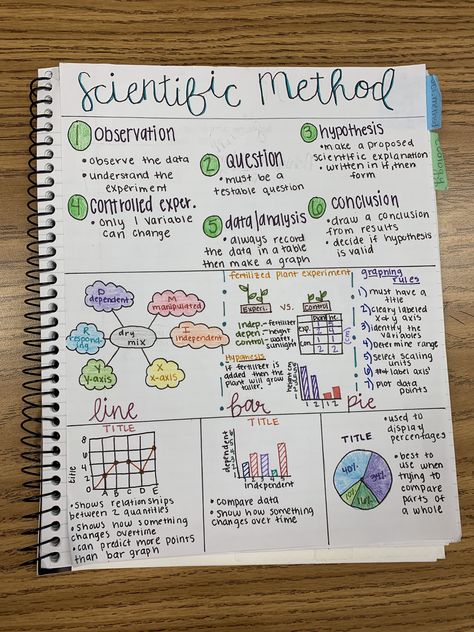 Scientific Method
1 Observation
• observe the data
• understand the
experiment
2 Question
• must be a
testable question
3 hypothesis
• make a proposed
scientific explanation
• written in if then
form
4 controlled exper.
• only 1 variable
can change
5 data/analysis
• always record
the data in a table
then make a graph
6 conclusion
• draw a conclusion
from results
• decide if hypothesis
is valid
D
dependent
R
responding
Y
y-axis
dry
mix
M
manipulated
I
independent
X
x-axis
fertilized plant experiment
Experi. vs. Control
indep. - fertilizer
depen. - height
control - water,
sunlight
Hypothesis
if fertilizer is
added then the
plant will grow
taller.
graphing
rules
1) must have a
title
2) clearly labeled
x + y axis
3) identify the
variables
4) Determine range
5) select scaling
units
6) # label axis'
7) plot data
points
line
TITLE
title
8
6
4
2
0
A B C D E
• shows relationships
between 2 quantities
• shows how something
changes overtime
• can predict more points
than bar graph
bar
TITLE
dependent
1 2 3 4 5
independent
• compare data
• show how something
changes over time
pie
• used to
display
percentages
TITLE
40%
• best to
use when
trying to
compare
parts of
a whole